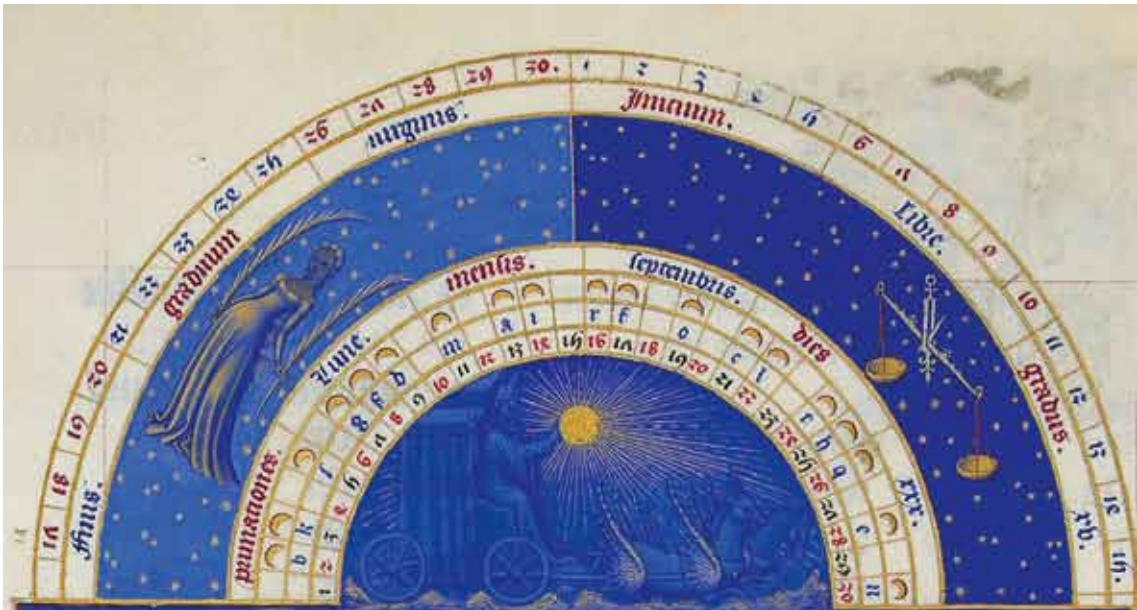 17 18 19 20 21 22 23 24 25 26 27 28 29 30. 1 2 3 4 5 6 7 8 9 10 11 12 13 14 15.
ffinis. graduum virginis. Inicium. Libre. gradus. xv.
primaciones. Lune. mensis. septembris. dies xxx.
b k s g p d m a i r f o c l t h q e n
1 2 3 4 5 6 7 8 9 10 11 12 13 14 15 16 17 18 19 20 21 22 23 24 25 26 27 28 29 30